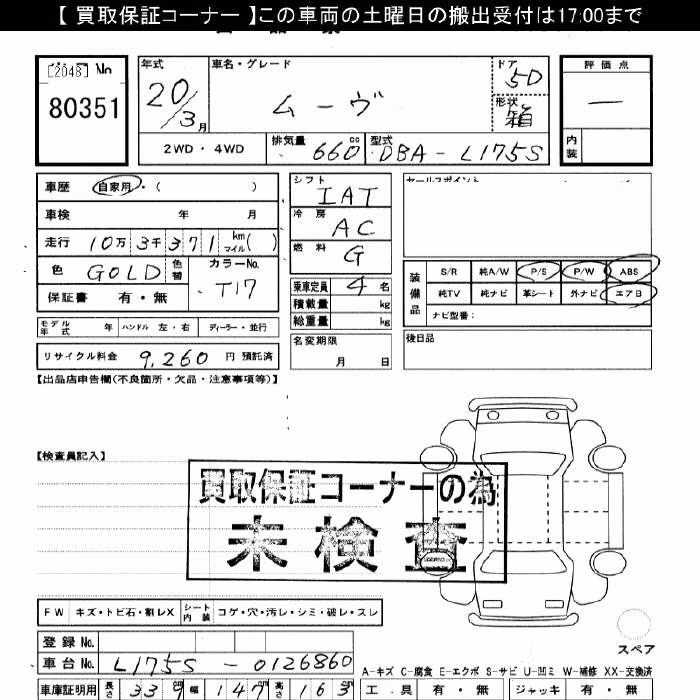 【 買取保証コーナー 】この車両の土曜日の搬出受付は17:00まで
[2048] No 80351
年式 20/3月
車名・グレード ムーヴ
ドア 5D
形状 箱
評価点 —
内装
2WD・4WD
排気量 660cc
型式 DBA-L175S
車歴 自家用・( )
車検 年 月
走行 10万3千371 km マイル( )
色 GOLD 色替 カラーNo. T17
保証書 有・無
モデル年式 年 ハンドル 左・右 ディーラー・並行
リサイクル料金 9,260 円 預託済
シフト IAT
冷房 AC
燃料 G
乗車定員 4 名
積載量 kg
総重量 kg
名変期限 月 日
セールスポイント
装備品
S/R 純A/W P/S P/W ABS
純TV 純ナビ 革シート 外ナビ エアB
ナビ型番:
後日品
【出品店申告欄(不良箇所・欠品・注意事項等)】
【検査員記入】
買取保証コーナーの為
未検査
FW キズ・トビ石・割レX シート内装 コゲ・穴・汚レ・シミ・破レ・スレ
スペア
登録 No.
車台 No. L175S-0126860
A-キズ C-腐食 E-エクボ S-サビ U-凹ミ W-補修 XX-交換済
車庫証明用 長さ 339 幅 147 高さ 163
工具 有・無 ジャッキ 有・無